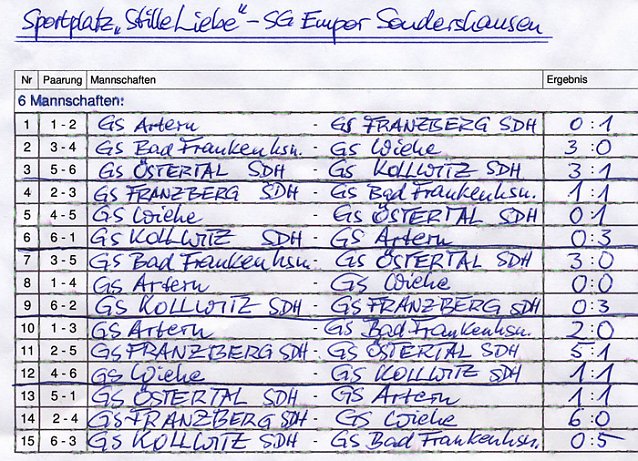 Sportplatz „Stille Liebe" - SG Empor Sondershausen
Nr Paarung Mannschaften Ergebnis
6 Mannschaften:
1 1 - 2 GS Artern - GS FRANZBERG SDH 0:1
2 3 - 4 GS Bad Frankenhsn. - GS Wiehe 3:0
3 5 - 6 GS ÖSTERTAL SDH - GS KOLLWITZ SDH 3:1
4 2 - 3 GS FRANZBERG SDH - GS Bad Frankenhsn. 1:1
5 4 - 5 GS Wiehe - GS ÖSTERTAL SDH 0:1
6 6 - 1 GS KOLLWITZ SDH - GS Artern 0:3
7 3 - 5 GS Bad Frankenhsn. - GS ÖSTERTAL SDH 3:0
8 1 - 4 GS Artern - GS Wiehe 0:0
9 6 - 2 GS KOLLWITZ SDH - GS FRANZBERG SDH 0:3
10 1 - 3 GS Artern - GS Bad Frankenhsn. 2:0
11 2 - 5 GS FRANZBERG SDH - GS ÖSTERTAL SDH 5:1
12 4 - 6 GS Wiehe - GS KOLLWITZ SDH 1:1
13 5 - 1 GS ÖSTERTAL SDH - GS Artern 1:1
14 2 - 4 GS FRANZBERG SDH - GS Wiehe 6:0
15 6 - 3 GS KOLLWITZ SDH - GS Bad Frankenhsn. 0:5